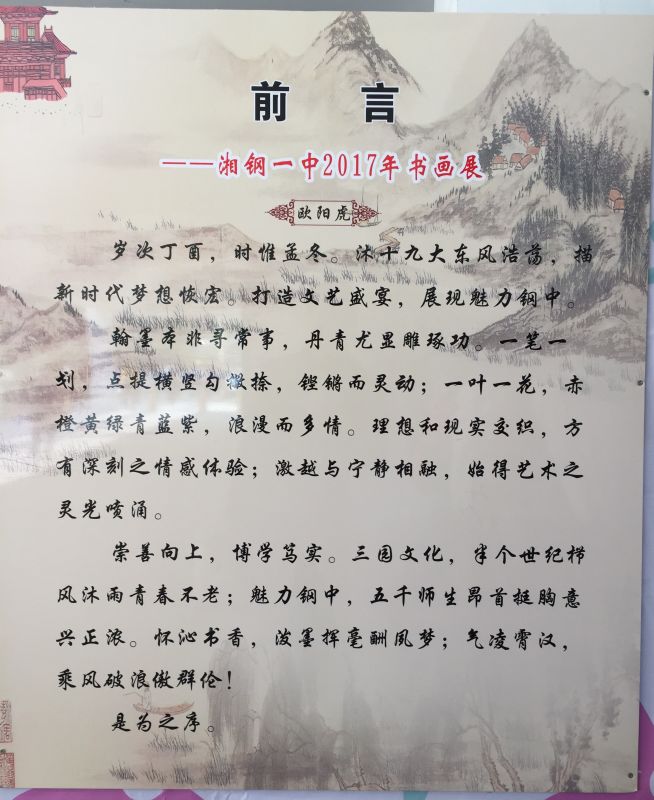 前言
——湘钢一中2017年书画展
欧阳虎
岁次丁酉，时惟孟冬。沐十九大东风浩荡，描
新时代梦想恢宏。打造文艺盛宴，展现魅力钢中。
翰墨本非寻常事，丹青尤显雕琢功。一笔一
划，点提横竖勾撇捺，铿锵而灵动；一叶一花，赤
橙黄绿青蓝紫，浪漫而多情。理想和现实交织，方
有深刻之情感体验；激越与宁静相融，始得艺术之
灵光喷涌。
崇善向上，博学笃实。三园文化，半个世纪栉
风沐雨青春不老；魅力钢中，五千师生昂首挺胸意
兴正浓。怀沁书香，泼墨挥毫酬夙梦；气凌霄汉，
乘风破浪傲群伦！
是为之序。